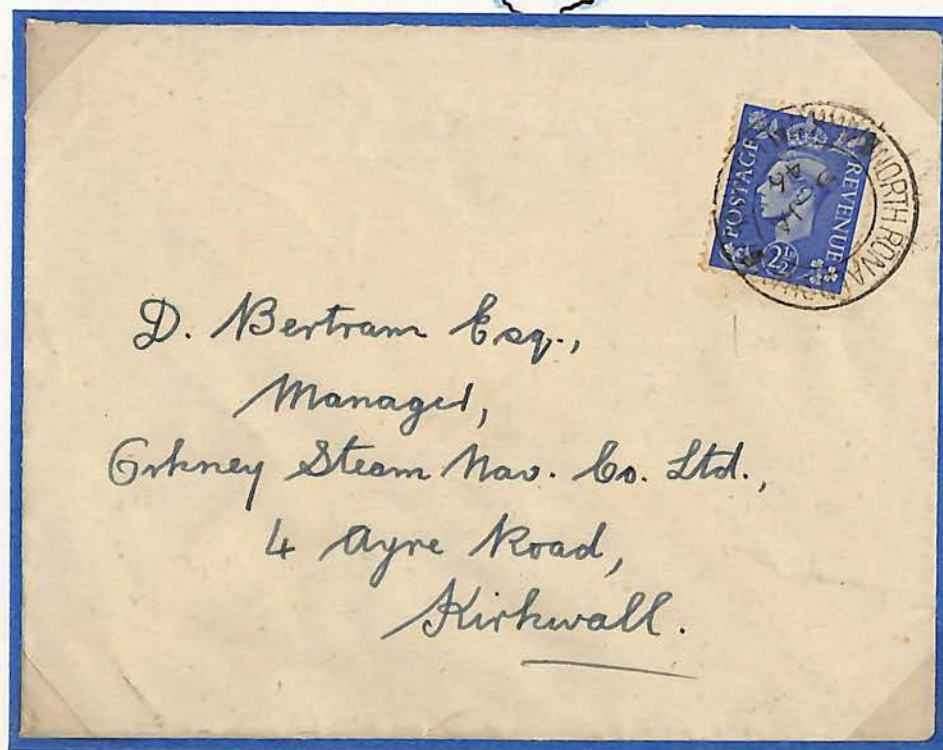 POSTAGE REVENUE
2½D
NORTH RONALDSHAY
D. Bertram Esq.,
Manager,
Orkney Steam Nav. Co. Ltd.,
4 Ayre Road,
Kirkwall.